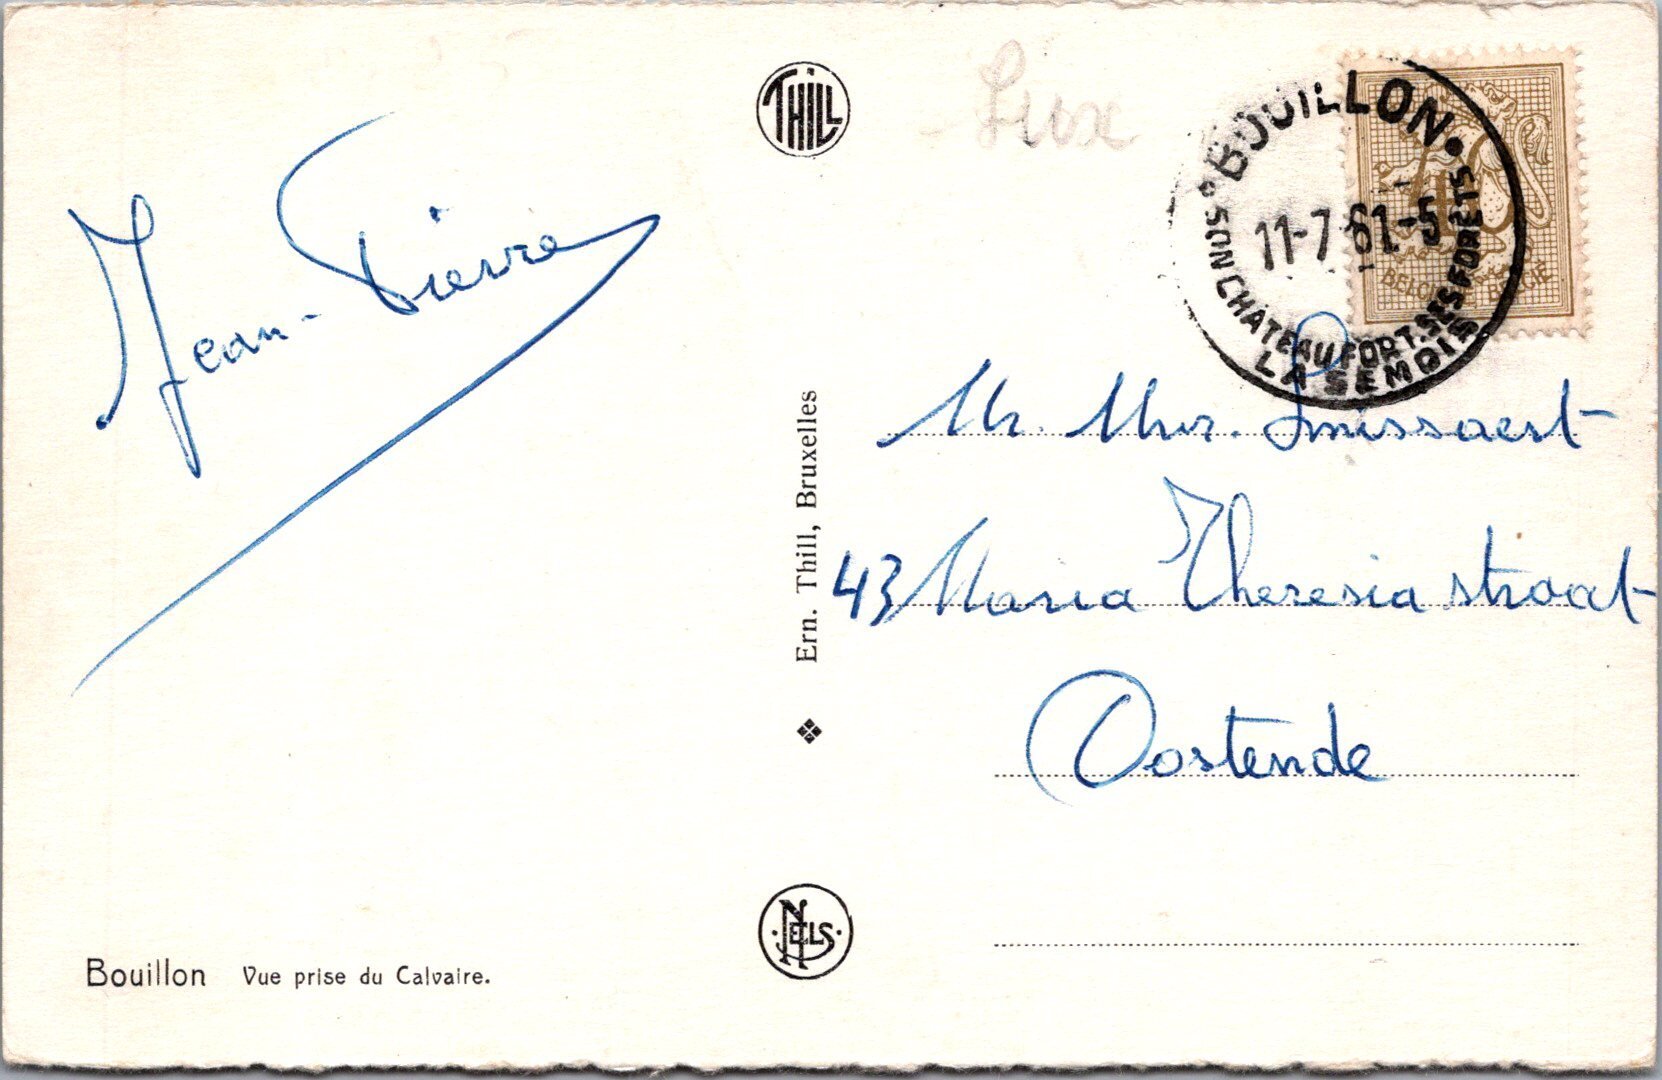 THILL
Lux
BOUILLON
11-7-61-5
SON CHÂTEAU FORT. SES FORÊTS
LA SEMOIS
BELGIQUE BELGIË
Jean-Pierre
Mr. Mvr. Smissaert
43 Maria Theresia straat
Oostende
Ern. Thill, Bruxelles
NELS
Bouillon Vue prise du Calvaire.